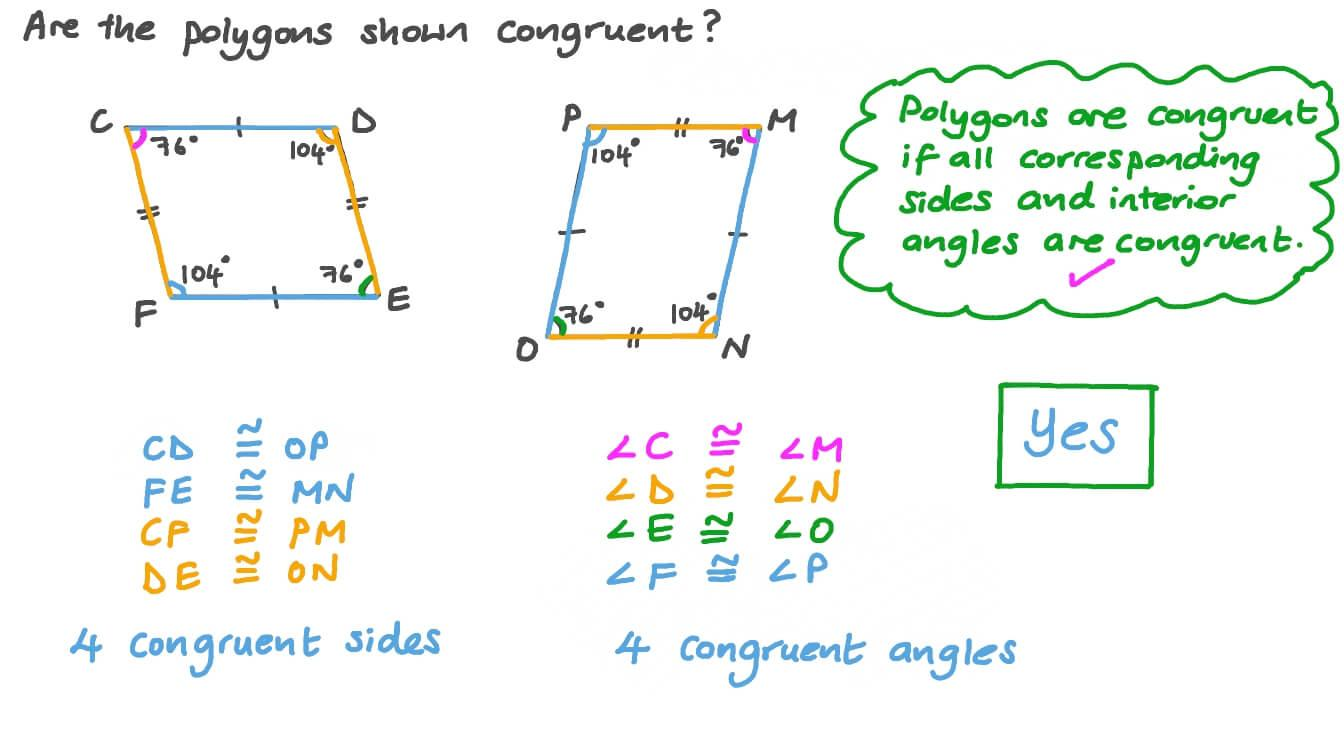 Are the polygons shown congruent?
C D
76° 104°
104° 76°
F E
P M
104° 76°
76° 104°
O N
Polygons are congruent
if all corresponding
sides and interior
angles are congruent.
CD ≅ OP
FE ≅ MN
CF ≅ PM
DE ≅ ON
4 congruent sides
∠C ≅ ∠M
∠D ≅ ∠N
∠E ≅ ∠O
∠F ≅ ∠P
4 congruent angles
Yes